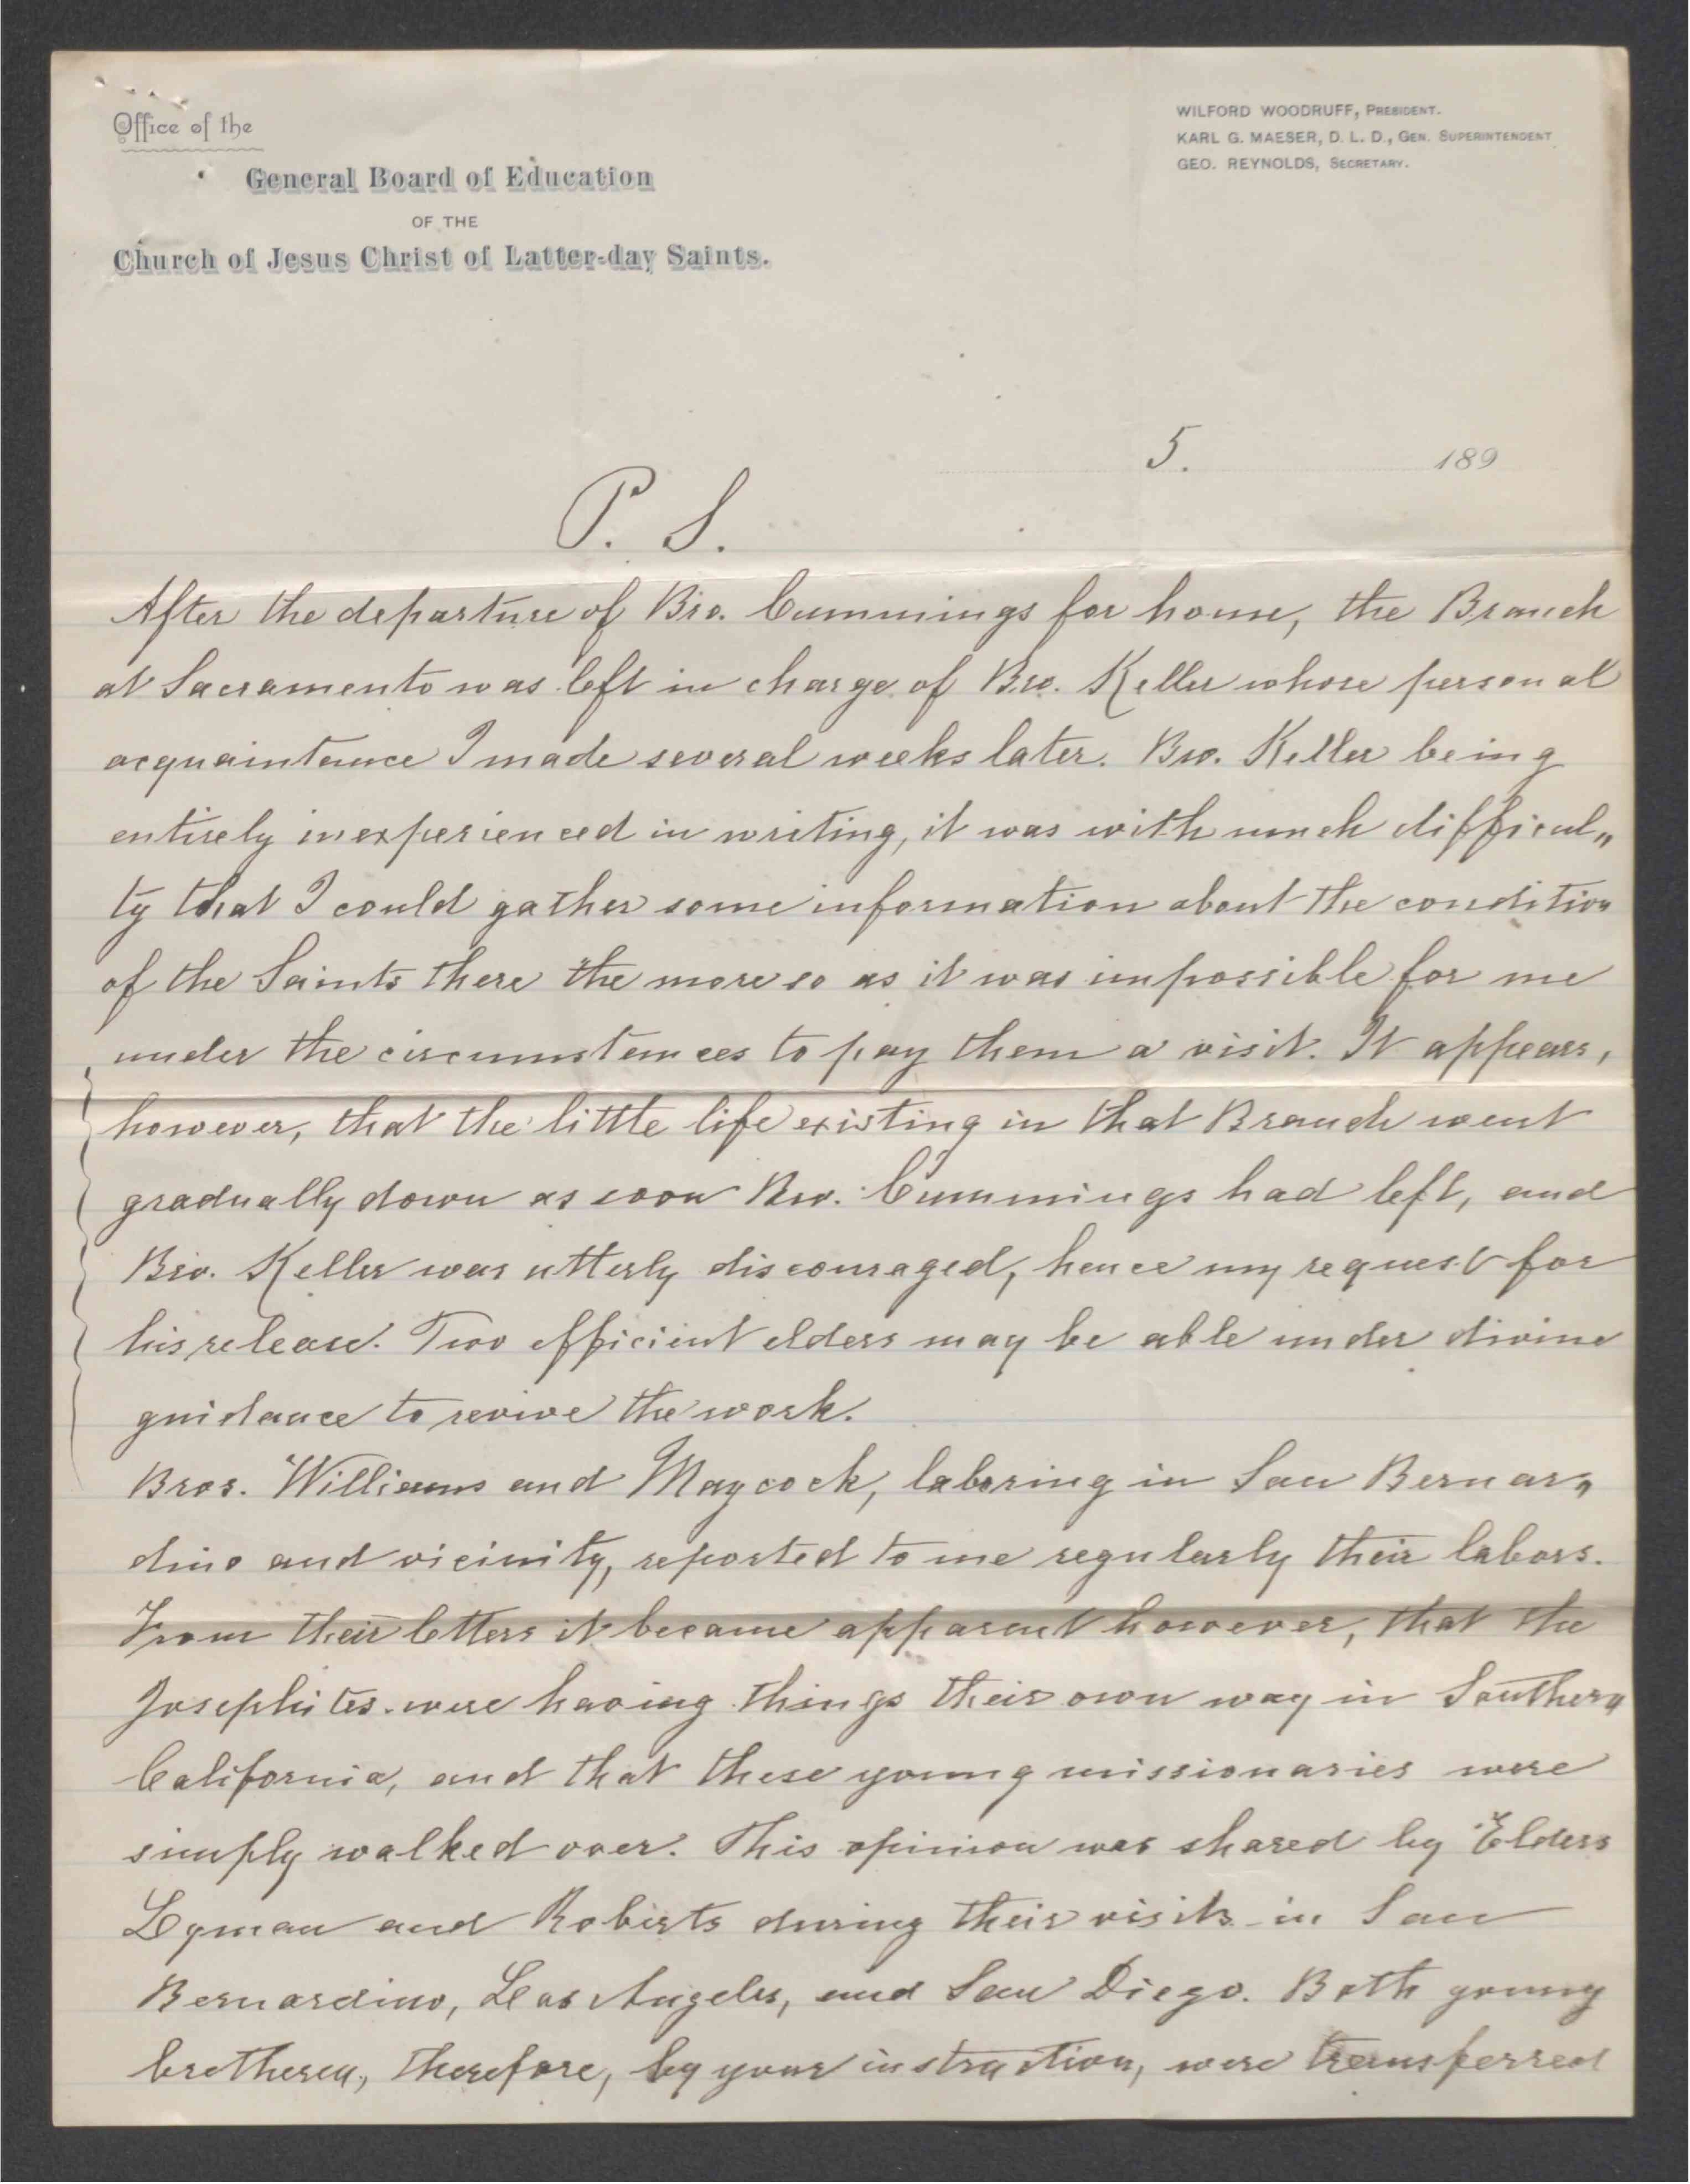 Office of the
General Board of Education
OF THE
Church of Jesus Christ of Latter-day Saints.
WILFORD WOODRUFF, PRESIDENT.
KARL G. MAESER, D. L. D., GEN. SUPERINTENDENT
GEO. REYNOLDS, SECRETARY.
5. 189
P. S.
After the departure of Bro. Cummings for home, the Branch
at Sacramento was left in charge of Bro. Keller whose personal
acquaintance I made several weeks later. Bro. Keller being
entirely inexperienced in writing, it was with much difficul„
ty that I could gather some information about the condition
of the Saints there the more so as it was impossible for me
under the circumstances to pay them a visit. It appears,
however, that the little life existing in that Branch went
gradually down as soon Bro. Cummings had left, and
Bro. Keller was utterly discouraged, hence my request for
his release. Two efficient elders may be able under divine
guidance to revive the work.
Bros. Williams and Maycock, laboring in San Bernar„
dino and vicinity, reported to me regularly their labors.
From their letters it became apparent however, that the
Josephites were having things their own way in Southern
California, and that these young missionaries were
simply walked over. This opinion was shared by Elders
Lyman and Roberts during their visits in San
Bernardino, Los Angeles, and San Diego. Both young
brethren, therefore, by your instruction, were transferred